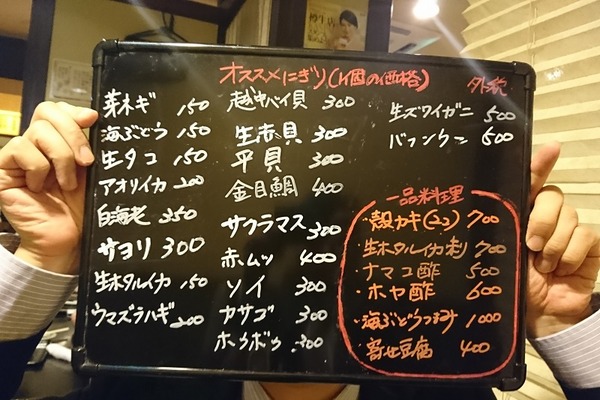 オススメにぎり(1個の価格)
芽ネギ 150
海ぶどう 150
生タコ 150
アオリイカ 200
白海老 350
サヨリ 300
生ホタルイカ 150
ウマズラハギ 200
越中バイ貝 300
生赤貝 300
平貝 300
金目鯛 400
サクラマス 300
赤ムツ 400
ソイ 300
カサゴ 300
ホウボウ 300
生ズワイガニ 500
バフンウニ 500
一品料理
・殻カキ(2コ) 700
・生ホタルイカ刺 700
・ナマコ酢 500
・ホヤ酢 600
・海ぶどうつまみ 1000
・寄せ豆腐 400